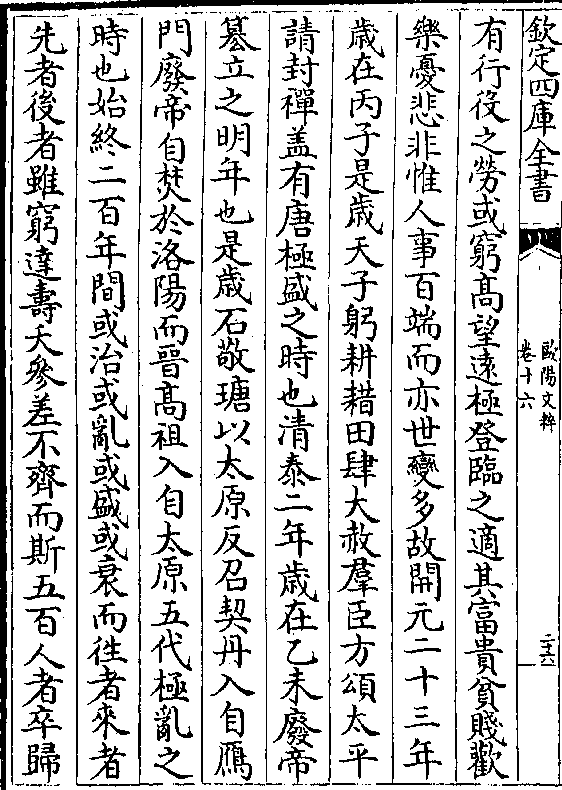 欽定四庫全書
歐陽文粹
卷十六
有行役之勞或窮髙望遠極登臨之適其富貴貧賤歡
樂憂悲非惟人事百端而亦世變多故開元二十三年
歳在丙子是歳天子躬耕耤田肆大赦羣臣方頌太平
請封禪盖有唐極盛之時也清泰二年歳在乙未廢帝
簒立之明年也是歳石敬瑭以太原反召契丹入自鴈
門廢帝自焚於洛陽而晉髙祖入自太原五代極亂之
時也始終二百年間或治或亂或盛或衰而往者來者
先者後者雖窮達壽夭參差不齊而斯五百人者卒歸